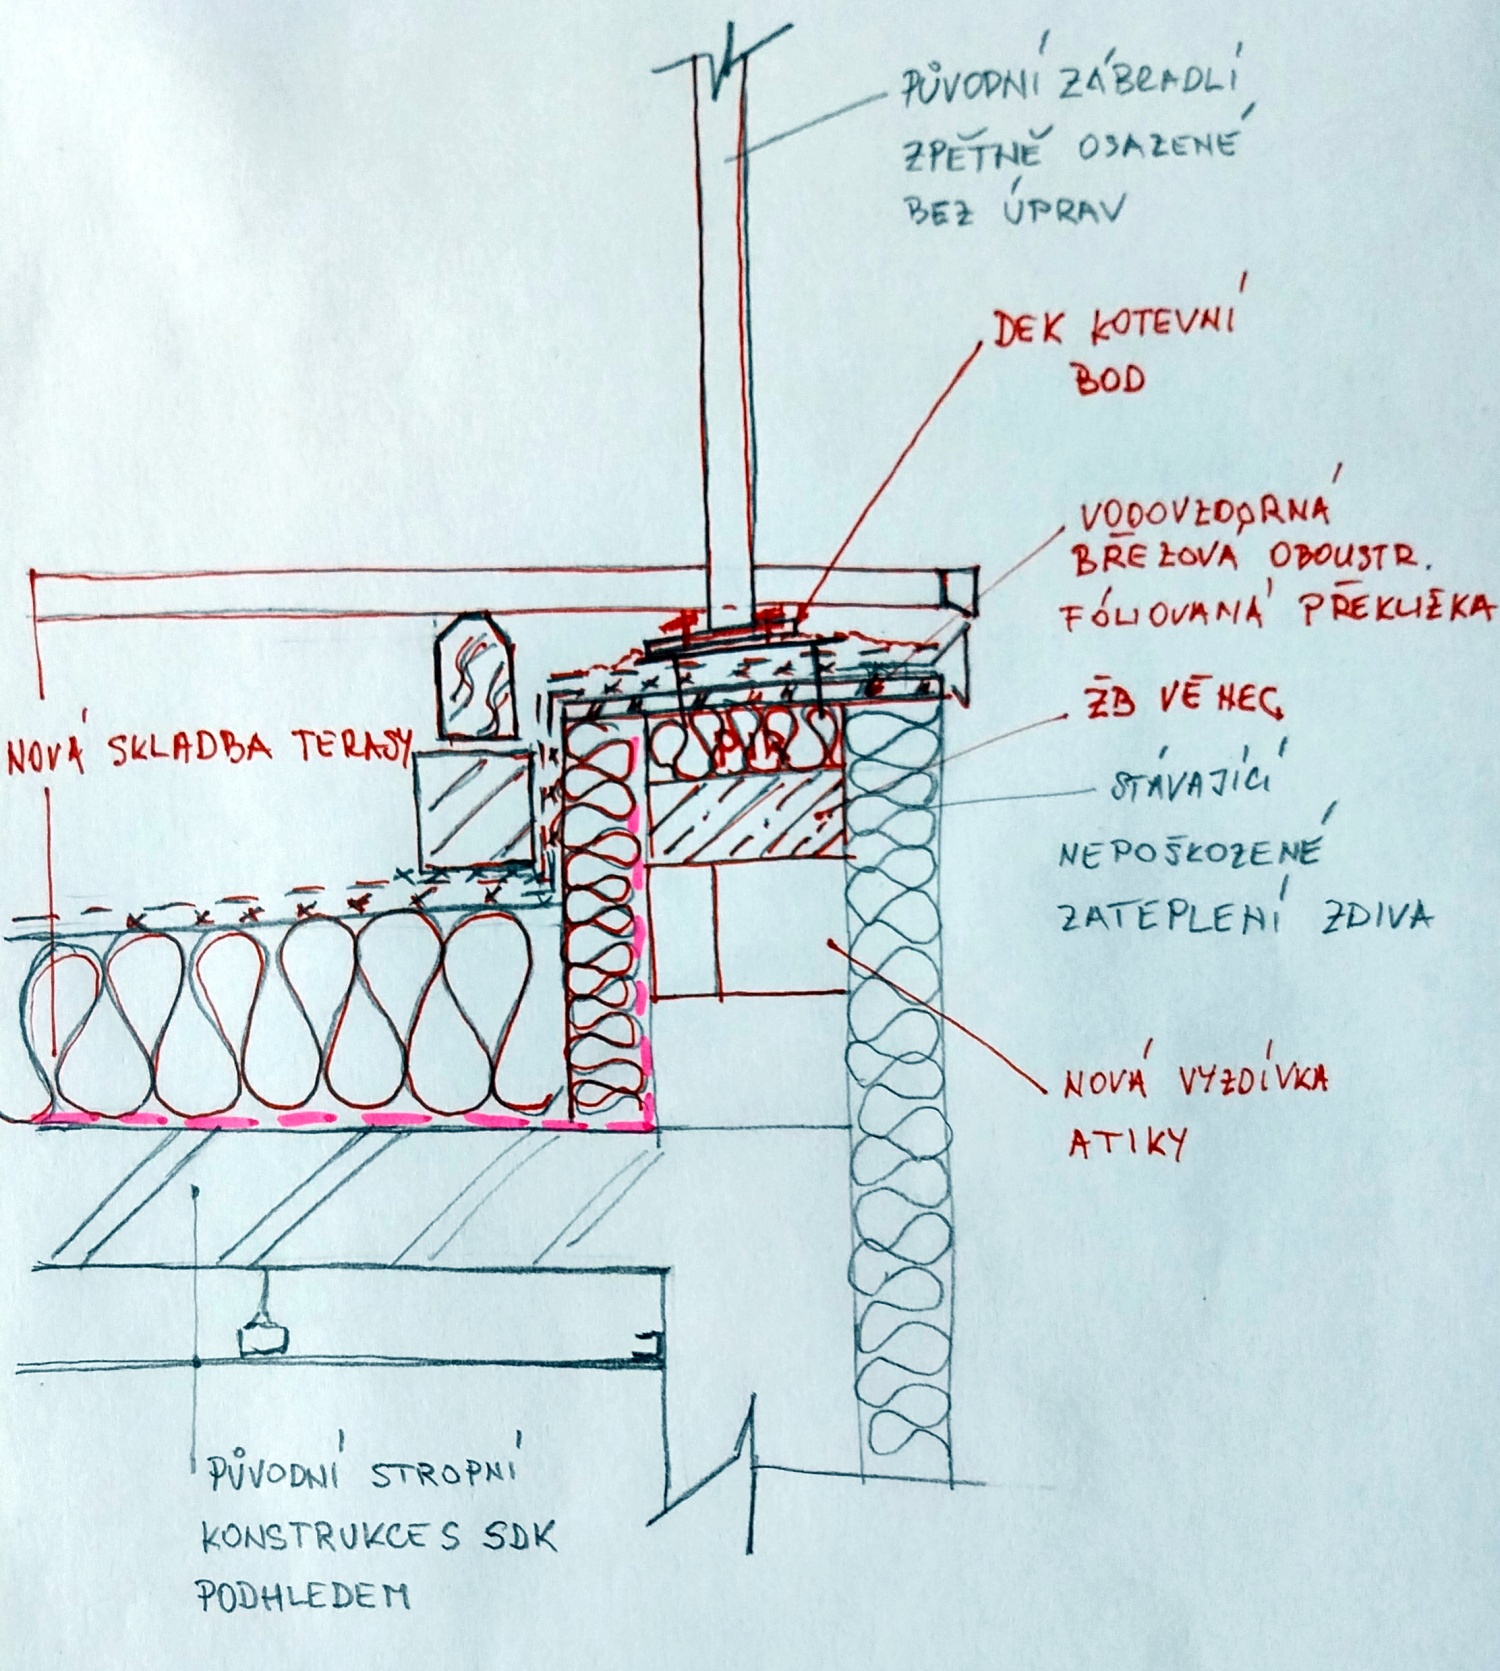 PŮVODNÍ ZÁBRADLÍ
ZPĚTNĚ OSAZENÉ
BEZ ÚPRAV
DEK KOTEVNÍ
BOD
VODOVZDORNÁ
BŘEZOVÁ OBOUSTR.
FÓLIOVANÁ PŘEKLIŽKA
ŽB VĚNEC
NOVÁ SKLADBA TERASY
PIR
STÁVAJÍCÍ
NEPOŠKOZENÉ
ZATEPLENÍ ZDIVA
NOVÁ VYZDÍVKA
ATIKY
PŮVODNÍ STROPNÍ
KONSTRUKCE S SDK
PODHLEDEM